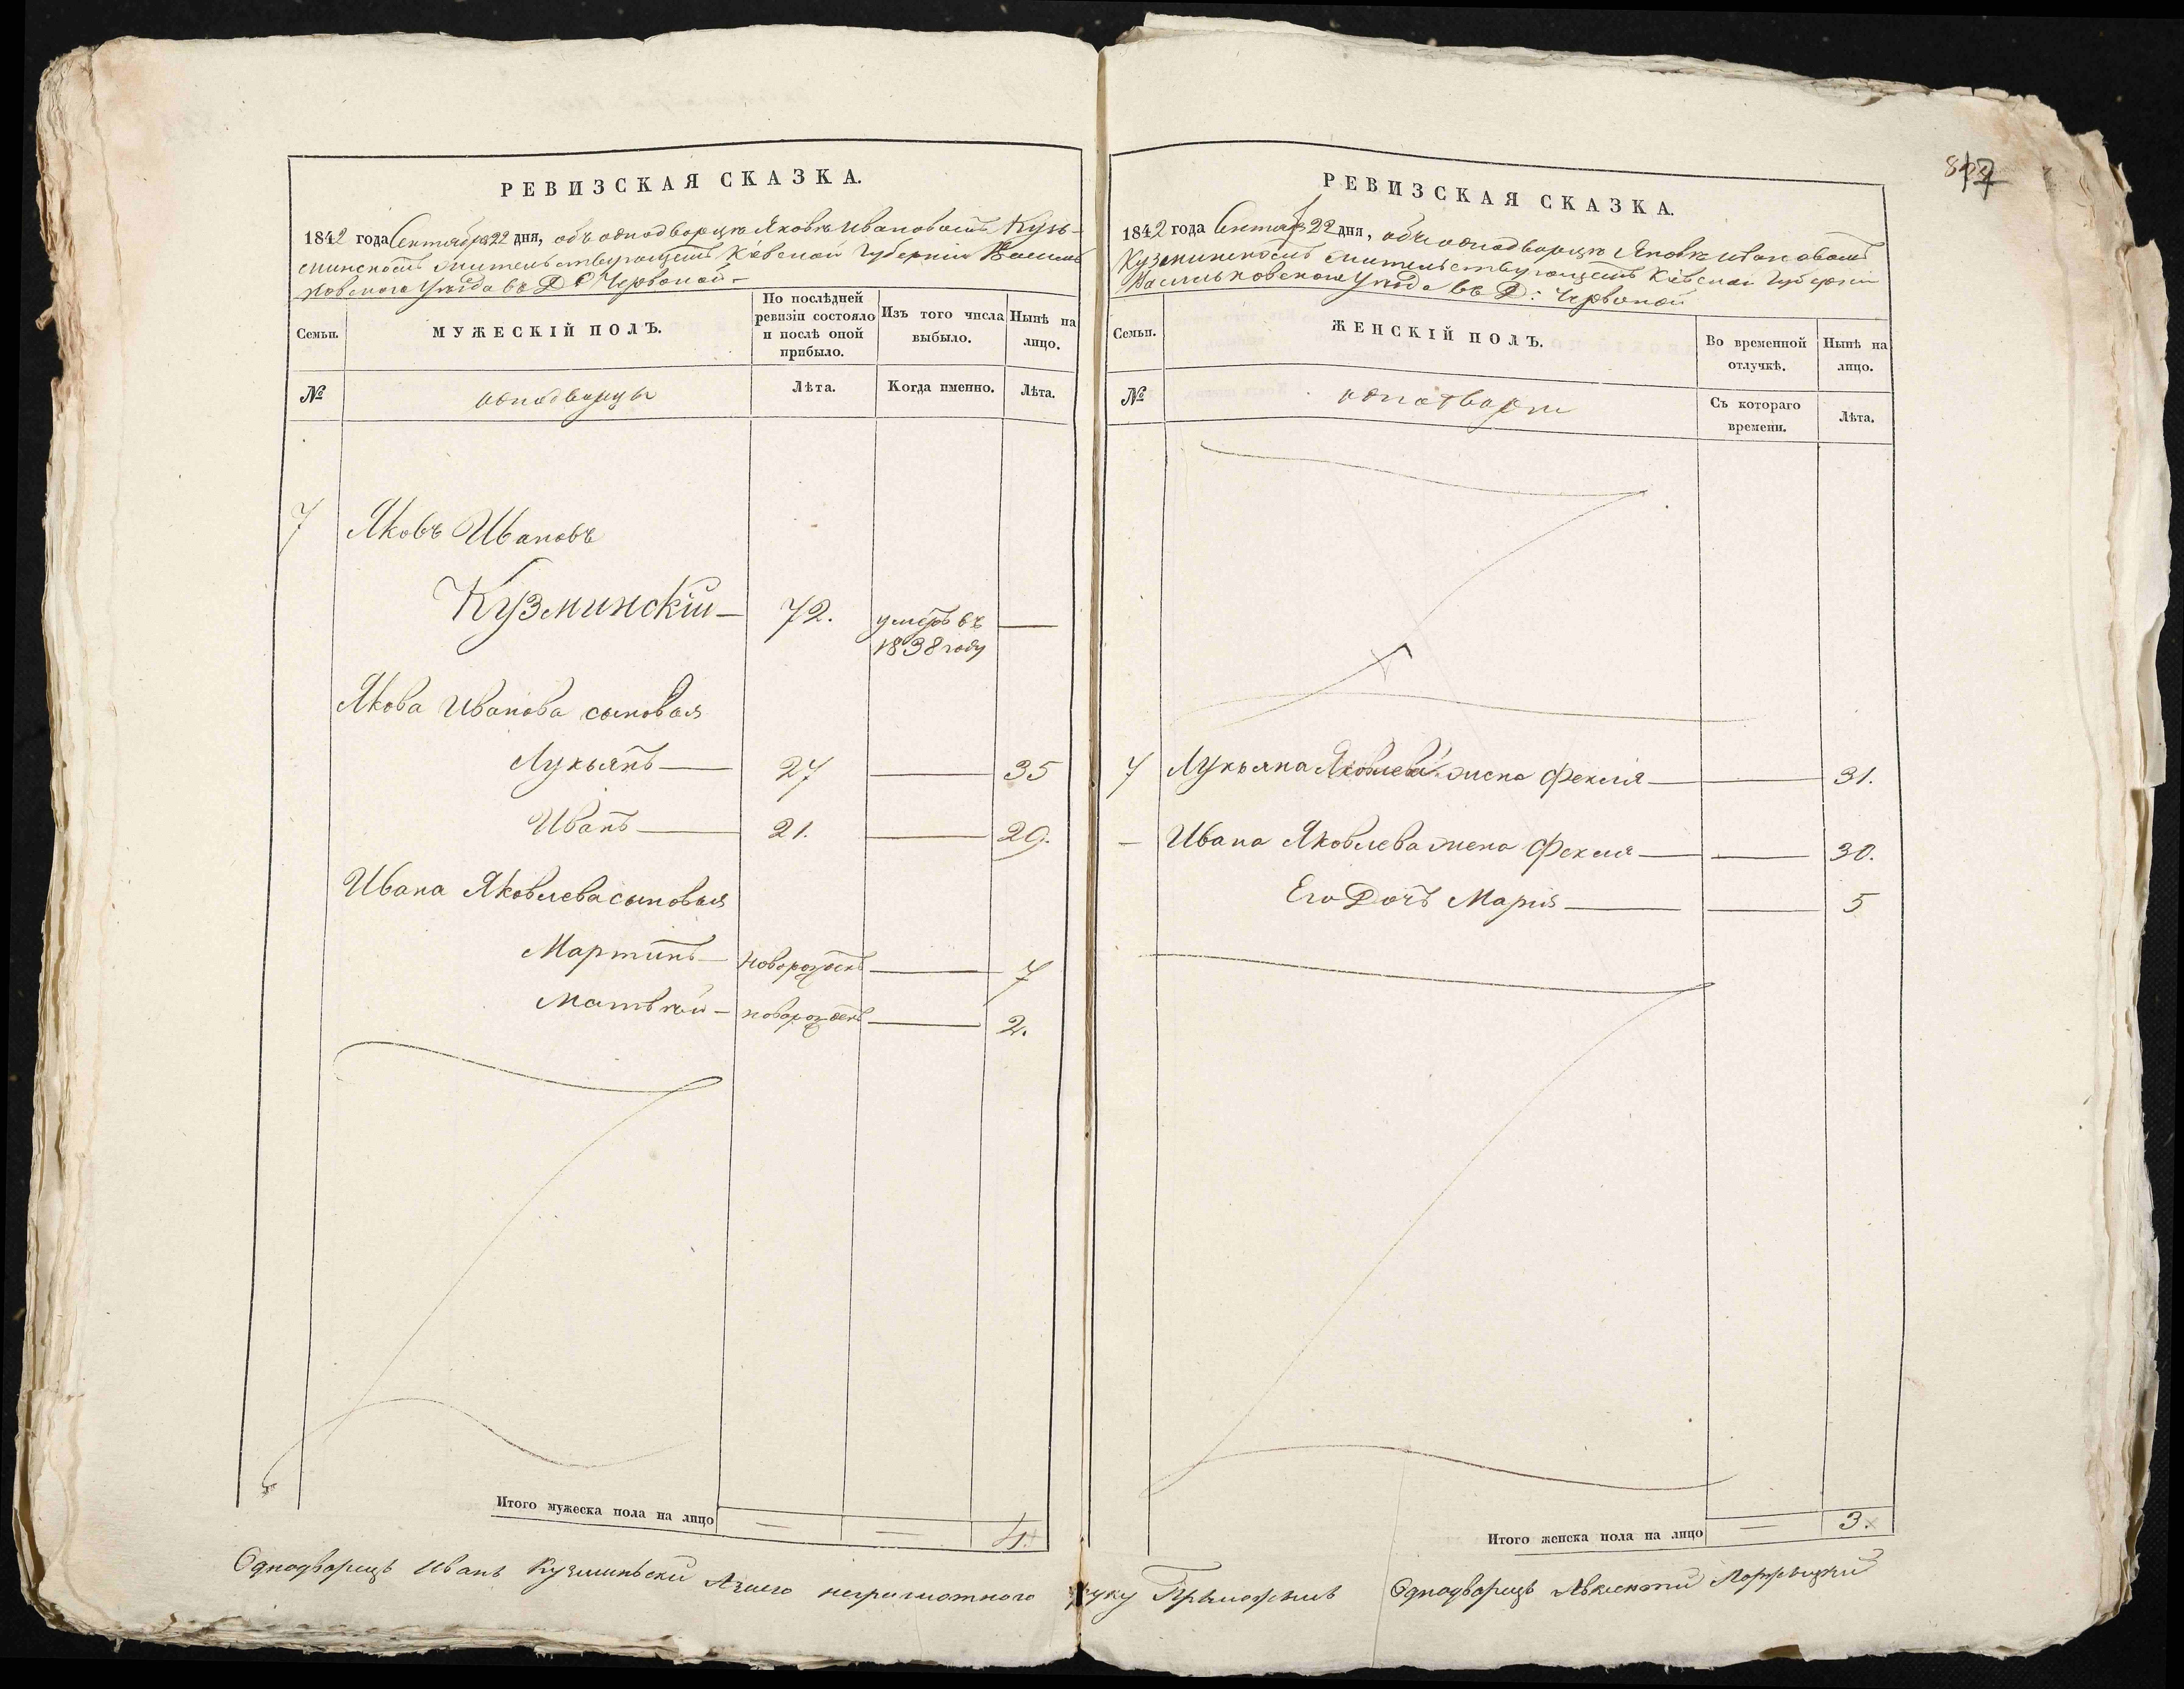 РЕВИЗСКАЯ СКАЗКА.
1842 года Сентября 22 дня, объ однодворцѣ Яковѣ Ивановомъ Кузь-
минскомъ жительствующемъ Кіевской Губерніи Василь
ковского Уѣзда въ Д. Червоной -
Семьи.
МУЖЕСКІЙ ПОЛЪ.
По послѣдней ревизіи состояло и послѣ оной прибыло.
Изъ того числа выбыло.
Нынѣ на лицо.
№
однодворцы
Лѣта.
Когда именно.
Лѣта.
7 Яковъ Ивановъ
Кузминскій — 72. умеръ въ —
1838 году
Якова Иванова сыновья
Лукьянъ — 27 — 35
Иванъ — 21. — 29.
Ивана Яковлева сыновья
Мартинъ — новорожденъ — 7
Матвѣй — новорожденъ — 2.
Итого мужеска пола на лицо — — 4.
РЕВИЗСКАЯ СКАЗКА.
1842 года Сентяб 22 дня, объ однодворцѣ Яковѣ Ивановомъ
Кузминскомъ жительствующемъ Кіевской Губерніи
Васильковского Уѣзда въ Д: Червоной
Семьи.
ЖЕНСКІЙ ПОЛЪ.
Во временной отлучкѣ.
Нынѣ на лицо.
№
Съ котораго времени.
Лѣта.
7 Лукьяна Яковлева жена Фекла — — 31.
— Ивана Яковлева жена Фекла — — 30.
Его Дочь Марія — — 5
Итого женска пола на лицо — 3.
Однодворецъ Иванъ Кузминьский неграмотного руку Приложилъ Однодворецъ